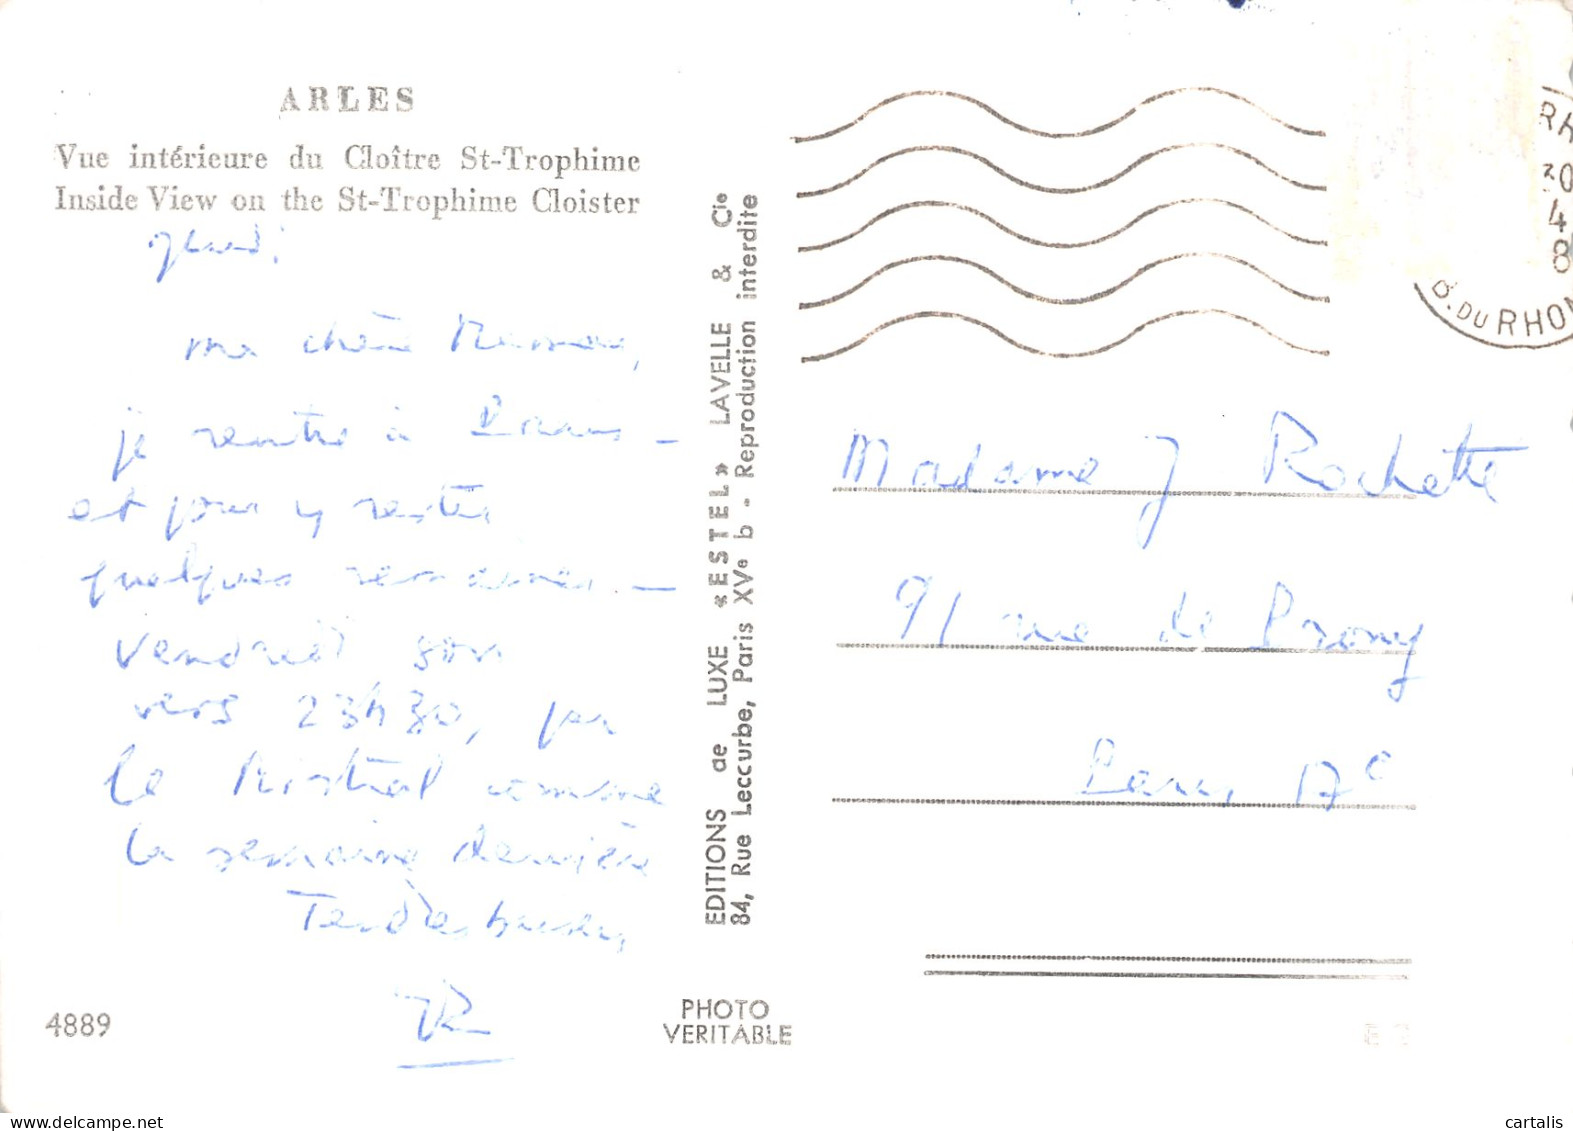 ARLES
Vue intérieure du Cloître St-Trophime
Inside View on the St-Trophime Cloister
jeudi
ma chère Maman,
je rentre à Paris –
et pour y rester
quelques semaines –
vendredi soir
vers 23h30, par
le Mistral comme
la semaine dernière
Tendres baisers,
JR
4889
EDITIONS de LUXE «ESTEL» LAVELLE & Cie
84, Rue Leccurbe, Paris XVe b - Reproduction interdite
PHOTO
VERITABLE
RH
30
4
8
B. DU RHON
Madame J Rochette
91 rue de Prony
Paris 17e
cartalis